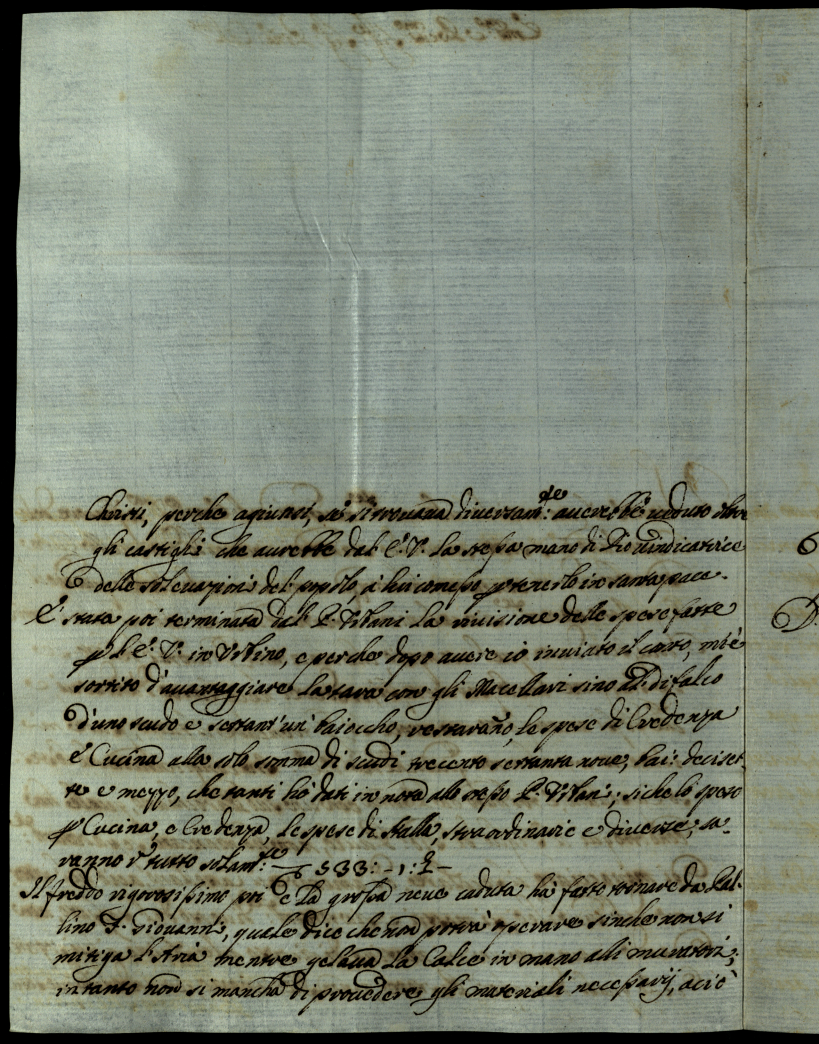 Christi, perche agiunse, se si trovava diversam:te averebbe veduto oltre
gli castighi che aurebbe dal E: V: la stessa mano di Dio vindicatrice
delle solevazioni del popolo, à lui comesso p tenerlo in santa pace.
E' stata poi terminata dal P. Vitani la revisione delle spese fatte
p L'E: V: in Urbino, e perche dopo avere io inviato il conto, mi è
sortito d'avantaggiare la tara con gli Macellari sino al difalco
d'uno scudo e settant'un baiocco, restarano le spese di Credenza
e Cucina alla sola somma di scudi trecento settanta nove, bai: deciset-
te e mezzo, che tanti hò dati in nota allo stesso P. Vitani; siche le spese
p Cucina, e Credenza, le spese di stalla, straordinarie e diverse, sa-
ranno in tutto solam:te 533: -1:
Il freddo rigorosissimo poi e la grossa neve caduta hà fatto tornare da Pal-
lino F. Giovanni, quale dice che non potrà operare sinche non si
mitiga l'Aria mentre gelava la Calce in mano alli muratori;
intanto non si mancha di provedere gli materiali necessarij, aciò